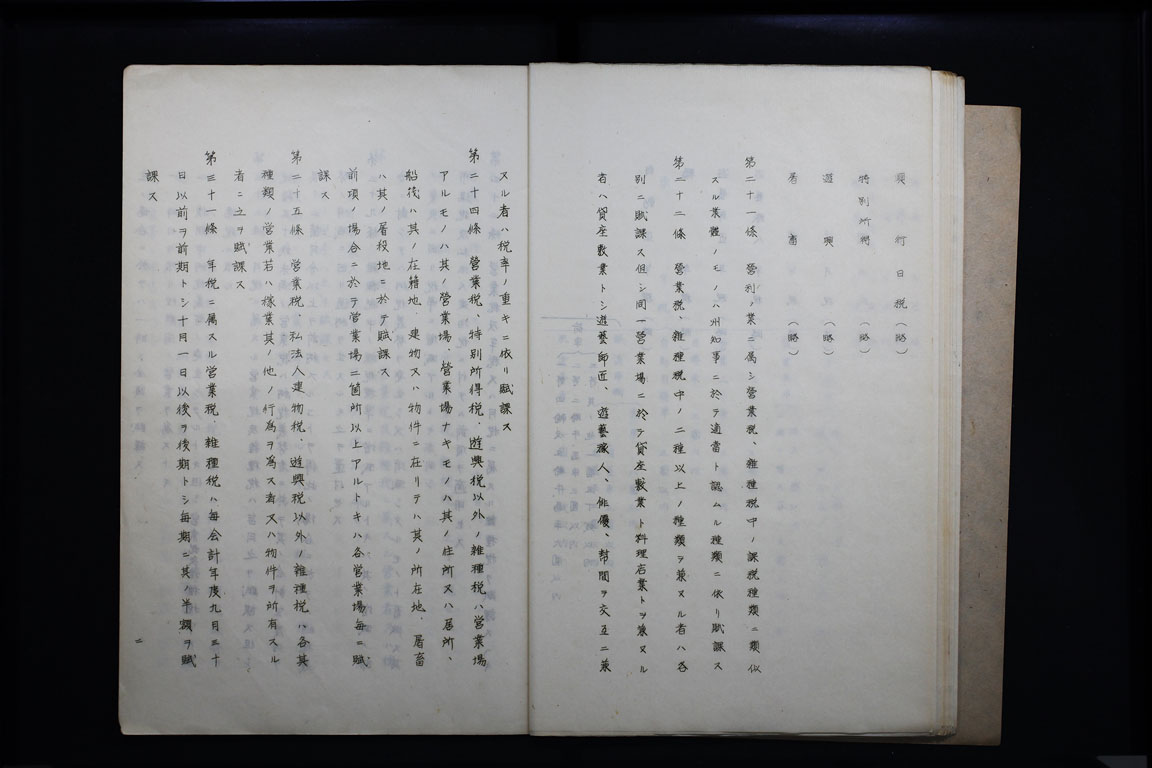 興行日税(略)
特別所得(略)
遊興税(略)
屠畜税(略)
第二十一條 營利ノ業ニ属シ營業税、雜種税中ノ課税種類ニ類似
スル業體ノモノハ州知事ニ於テ適當ト認ムル種類ニ依リ賦課ス
第二十二條 營業税、雜種税中ノ二種以上ノ種類ヲ兼ヌル者ハ各
別ニ賦課ス但シ同一營業場ニ於テ貸座敷業ト料理店業トヲ兼ヌル
者ハ貸座敷業トシ遊藝師匠、遊藝稼人、俳優、幇間ヲ交互ニ兼
スル者ハ税率ノ重キニ依リ賦課ス
第二十四條 營業税、特別所得税、遊興税以外ノ雜種税ハ營業場
アルモノハ其ノ營業場、營業場ナキモノハ其ノ住所又ハ居所、
船筏ハ其ノ在籍地、建物又ハ物件ニ在リテハ其ノ所在地、屠畜
ハ其ノ屠殺地ニ於テ賦課ス
前項ノ場合ニ於テ營業場二箇所以上アルトキハ各營業場毎ニ賦
課ス
第二十五條 營業税、私法人建物税、遊興税以外ノ雜種税ハ各其
種類ノ營業若ハ稼業其ノ他ノ行為ヲ為ス者又ハ物件ヲ所有スル
者ニ之ヲ賦課ス
第三十一條 年税ニ属スル營業税、雜種税ハ毎会計年度九月三十
日以前ヲ前期トシ十月一日以後ヲ後期トシ毎期ニ其ノ半額ヲ賦
課ス
二